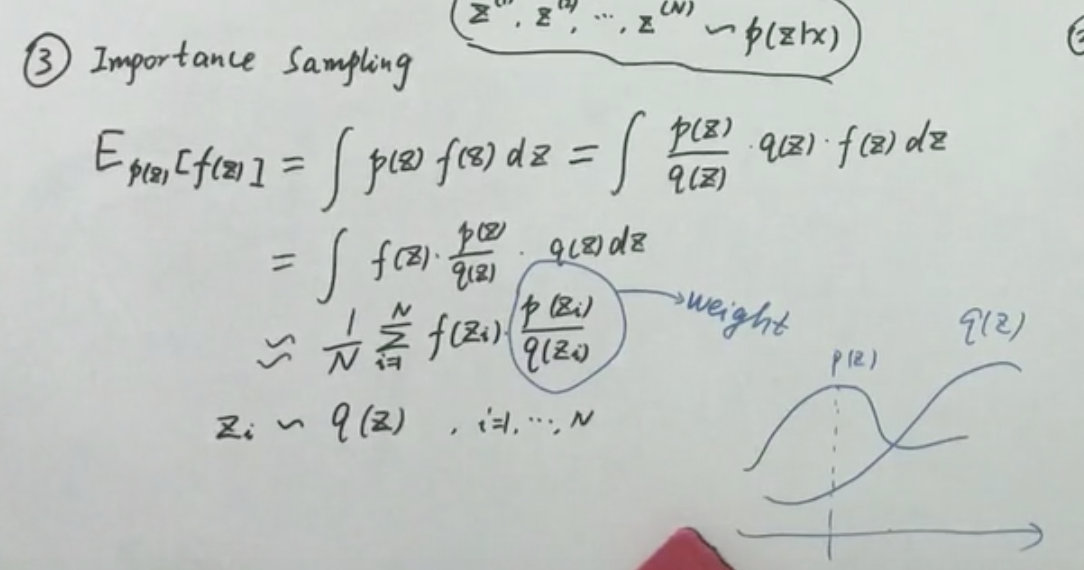 z^(1), z^(2), ..., z^(N) ∼ p(z|x)
③ Importance Sampling
E_p(z)[f(z)] = ∫ p(z) f(z) dz = ∫ p(z)/q(z) · q(z) · f(z) dz
= ∫ f(z) · p(z)/q(z) · q(z) dz
≈ 1/N ∑_{i=1}^{N} f(z_i) · p(z_i)/q(z_i) → weight
z_i ∼ q(z), i=1, ..., N
p(z)
q(z)